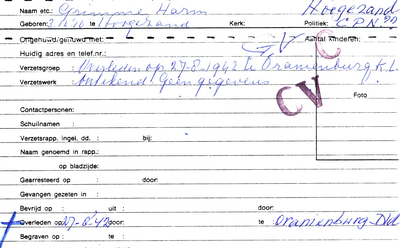 Naam etc.: Grimme Harm Hoogezand
Geboren: te Hoogezand Kerk: Politiek: CPN
Ongehuwd/gehuwd met: Aantal kinderen:
Huidig adres en telef.nr.:
Verzetsgroep : Overleden op 27-8-1942 te Oranienburg K.L.
Verzetswerk : Onbekend geen gegevens
CV C
Foto
Contactpersonen:
Schuilnamen :
Verzetsrapp. ingel. dd. : bij:
Naam genoemd in rapp.:
op bladzijde:
Gearresteerd op : door:
Gevangen gezeten in :
Bevrijd op : uit : door:
Overleden op: 27-8-42 door: te : Oranienburg-Dld
Begraven op : te :